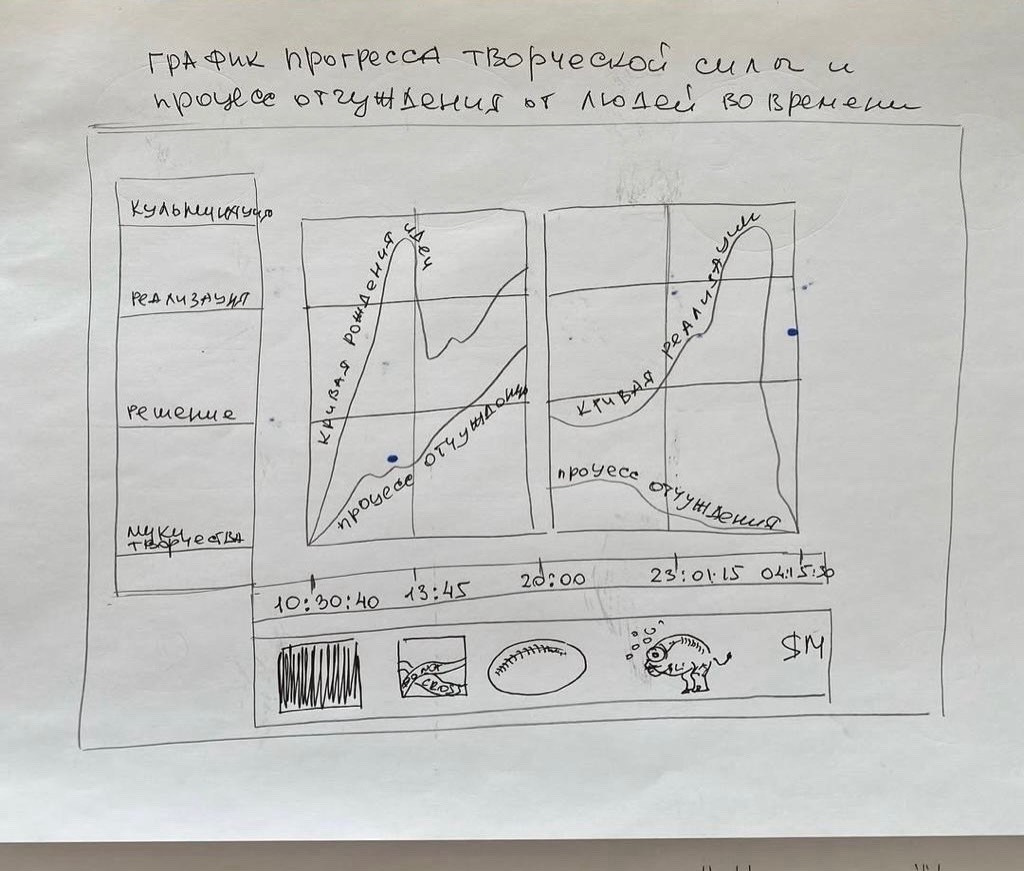 ГРАФИК ПРОГРЕССА ТВОРЧЕСКОЙ СИЛЫ И
ПРОЦЕСС ОТЧУЖДЕНИЯ ОТ ЛЮДЕЙ ВО ВРЕМЕНИ
КУЛЬМИНАЦИЯ
РЕАЛИЗАЦИЯ
РЕШЕНИЕ
МУКИ
ТВОРЧЕСТВА
КРИВАЯ РОЖДЕНИЯ ИДЕИ
ПРОЦЕСС ОТЧУЖДЕНИЯ
КРИВАЯ РЕАЛИЗАЦИИ
ПРОЦЕСС ОТЧУЖДЕНИЯ
10:30:40 13:45 20:00 23:01:15 04:15:30
DO NOT
CROSS
$M